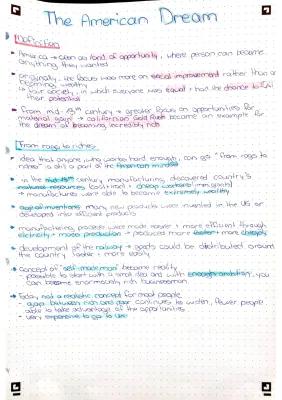 The American Dream
Definition
America → seen as land of opportunity, where person can become
anything they wanted
originally, the focus was more on social improvement rather than on
becoming wealthy
society, in which everyone was equal + had the chance to
their potential
From mid-19th century → greater focus on opportunities for
material gains → californian Gold Rush became an example for
the dream of becoming incredibly rich
From rags to riches
idea that anyone who works hard enough, can go "from rags to
riches" is still a part of the American mindset
in the 19th century manufacturing, discovered country's
natural resources (coal, iron) + cheap workers (immigrants)
→ manufacturers were able to become extremely wealthy
inventions: many new products were invented in the US or
developed into efficient products
manufacturing process were made easier + more efficient through
electricity + mass production → produced more faster + more cheaply
development of the railway → goods could be distributed around
the country faster + more easily
concept of "self-made man" became reality
possible to start with a small idea and with enough ambition, you
can become enormously rich businessman
Today not a realistic concept for most people
gaps between rich and poor continues to widen, fewer people
able to take advantage of the opportunities
very expensive to go to uni